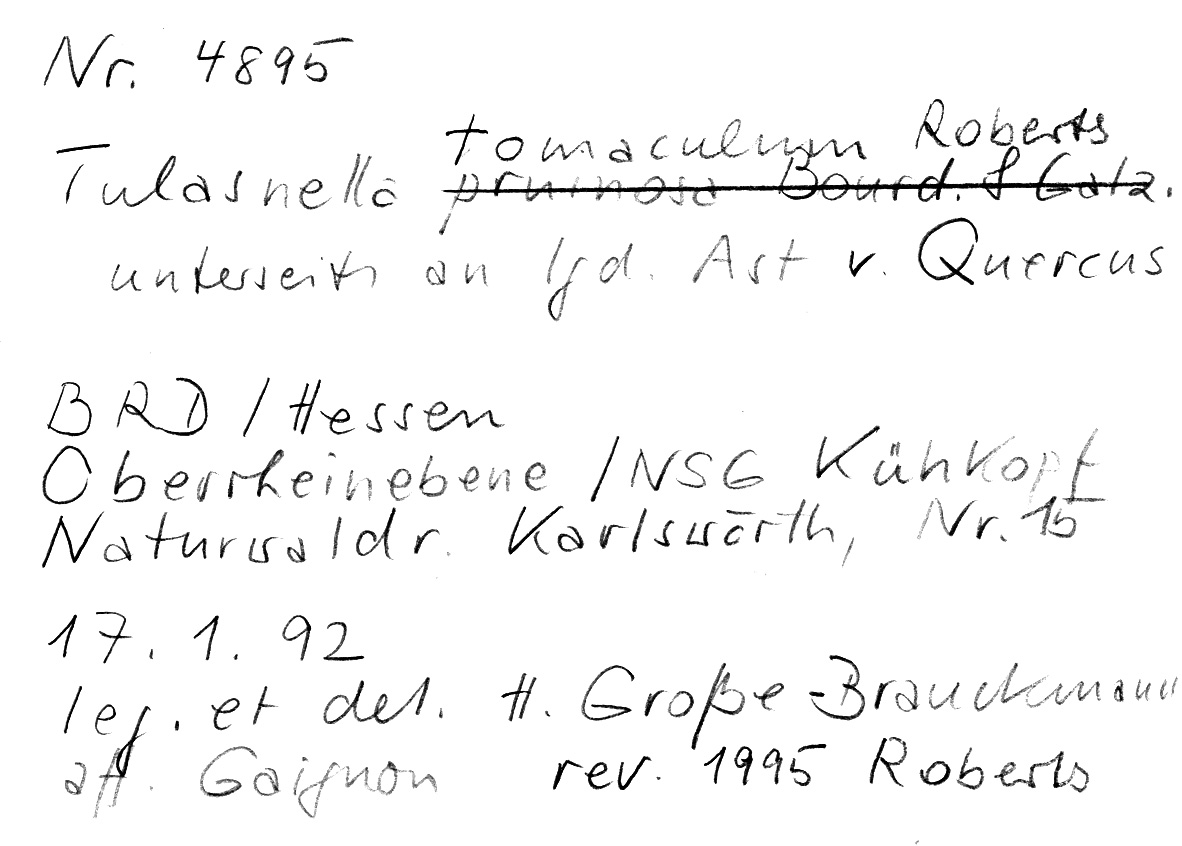 Nr. 4895
tomaculum Roberts
Tulasnella pruinosa Bourd. & Galz.
unterseits an lgd. Ast v. Quercus
BRD / Hessen
Oberrheinebene / NSG Kühkopf
Naturwaldr. Karlswörth, Nr. 15
17. 1. 92
leg. et det. H. Große-Brauckmann
aff. Gaignon rev. 1995 Roberts